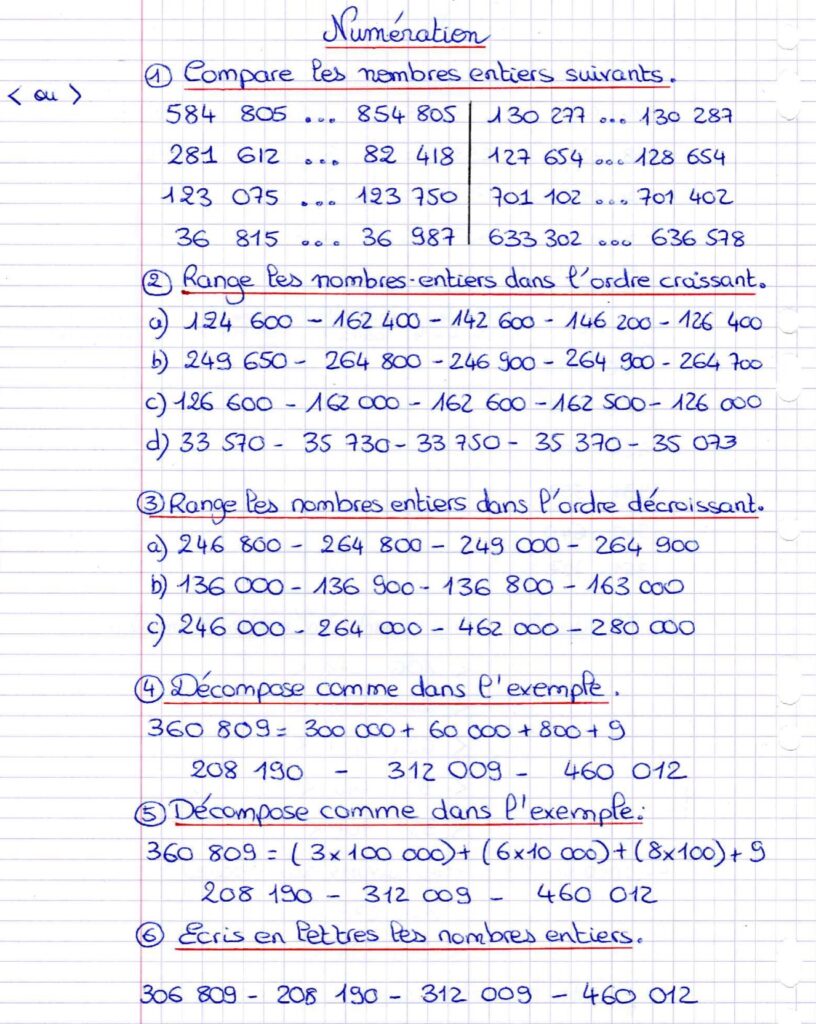 Numération
① Compare les nombres entiers suivants.
< ou >
584 805 ... 854 805 | 130 277 ... 130 287
281 612 ... 82 418 | 127 654 ... 128 654
123 075 ... 123 750 | 701 102 ... 701 402
36 815 ... 36 987 | 633 302 ... 636 578
② Range les nombres entiers dans l'ordre croissant.
a) 124 600 - 162 400 - 142 600 - 146 200 - 126 400
b) 249 650 - 264 800 - 246 900 - 264 900 - 264 700
c) 126 600 - 162 000 - 162 600 - 162 500 - 126 000
d) 33 570 - 35 730 - 33 750 - 35 370 - 35 073
③ Range les nombres entiers dans l'ordre décroissant.
a) 246 800 - 264 800 - 249 000 - 264 900
b) 136 000 - 136 900 - 136 800 - 163 000
c) 246 000 - 264 000 - 462 000 - 280 000
④ Décompose comme dans l'exemple.
360 809 = 300 000 + 60 000 + 800 + 9
208 190 - 312 009 - 460 012
⑤ Décompose comme dans l'exemple:
360 809 = (3x100 000) + (6x10 000) + (8x100) + 9
208 190 - 312 009 - 460 012
⑥ Ecris en lettres les nombres entiers.
306 809 - 208 190 - 312 009 - 460 012